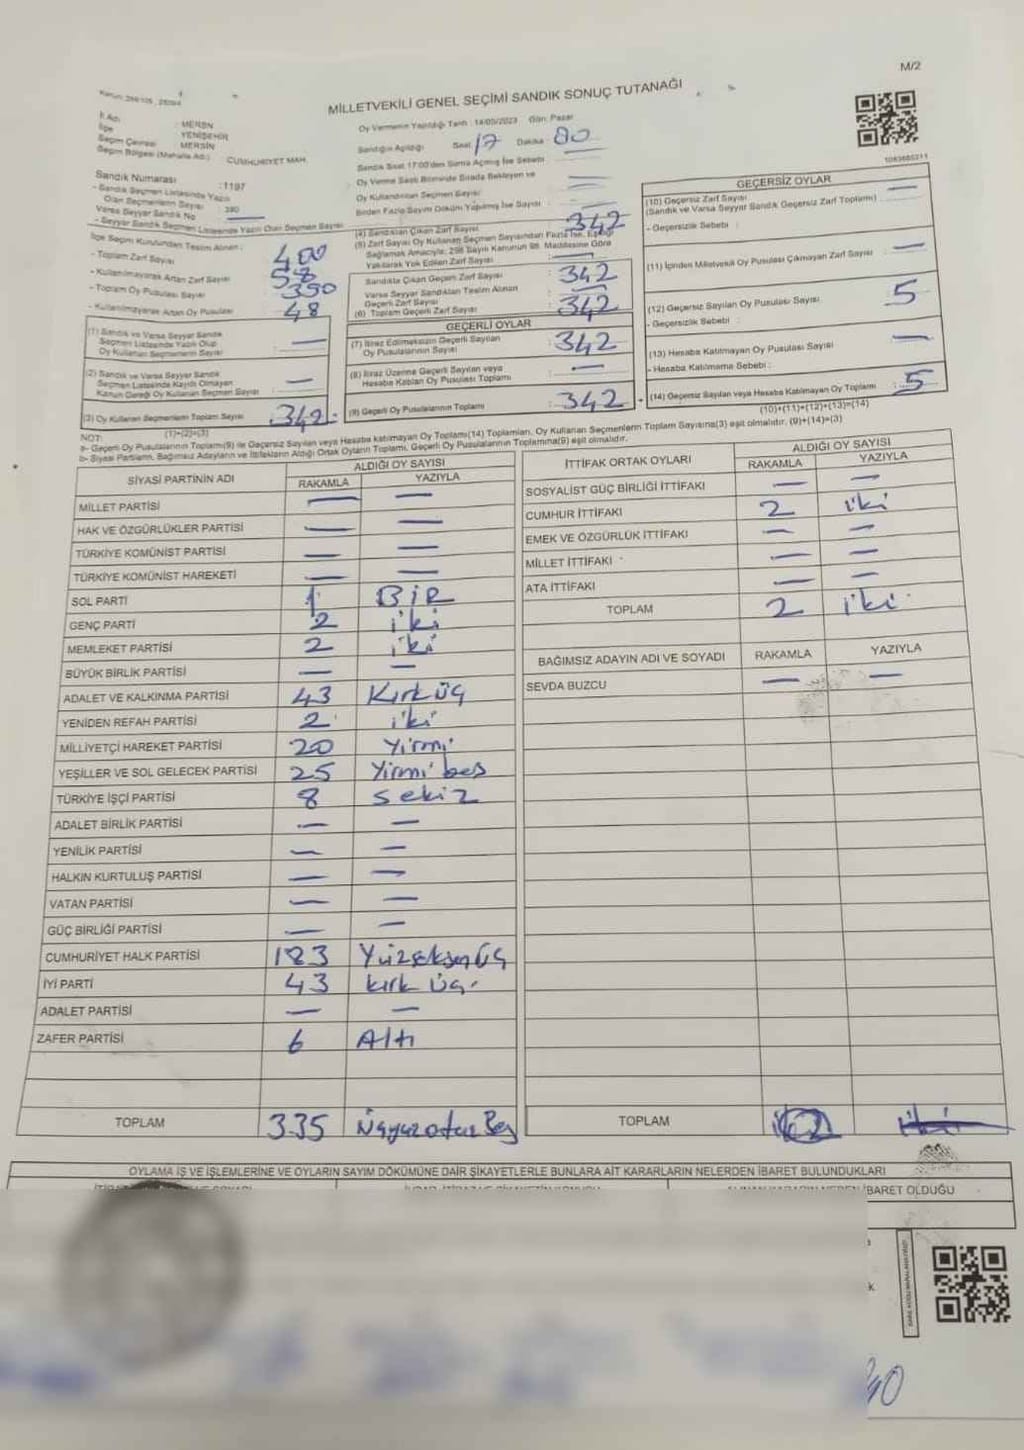 M/2
MİLLETVEKİLİ GENEL SEÇİMİ SANDIK SONUÇ TUTANAĞI
İl Adı : MERSİN
İlçe : YENİŞEHİR
Seçim Çevresi : MERSİN
Seçim Bölgesi (Mahalle Adı) : CUMHURİYET MAH.
Sandık Numarası : 1197
- Sandık Seçmen Listesinde Yazılı
Olan Seçmenlerin Sayısı : 390
Varsa Seyyar Sandık No
- Seyyar Sandık Seçmen Listesinde Yazılı Olan Seçmen Sayısı
Oy Vermenin Yapıldığı Tarih : 14/05/2023 Gün: Pazar
Sandığın Açıldığı Saat 17 Dakika : 00
Sandık Saat 17:00'den Sonra Açılmış İse Sebebi
Oy Verme Saati Bitiminde Sırada Bekleyen ve
Oy Kullandırılan Seçmen Sayısı
Birden Fazla Sayım Döküm Yapılmış İse Sayısı :
1083685211
İlçe Seçim Kurulundan Teslim Alınan :
- Toplam Zarf Sayısı 400
- Kullanılmayarak Artan Zarf Sayısı 58
- Toplam Oy Pusulası Sayısı 390
- Kullanılmayarak Artan Oy Pusulası 48
(1) Sandık ve Varsa Seyyar Sandık
Seçmen Listesinde Yazılı Olup
Oy Kullanan Seçmenlerin Sayısı : —
(2) Sandık ve Varsa Seyyar Sandık
Seçmen Listesinde Kayıtlı Olmayan
Kanun Gereği Oy Kullanan Seçmen Sayısı : —
(3) Oy Kullanan Seçmenlerin Toplam Sayısı : 342
(1)+(2)=(3)
(4) Sandıktan Çıkan Zarf Sayısı 342
(5) Zarf Sayısı Oy Kullanan Seçmen Sayısından Fazla İse, Eşitliği
Sağlamak Amacıyla, 298 Sayılı Kanunun 98. Maddesine Göre
Yakılarak Yok Edilen Zarf Sayısı : —
Sandıkta Çıkan Geçerli Zarf Sayısı : 342
Varsa Seyyar Sandıktan Teslim Alınan
Geçerli Zarf Sayısı : —
(6) Toplam Geçerli Zarf Sayısı : 342
GEÇERLİ OYLAR
(7) İtiraz Edilmeksizin Geçerli Sayılan
Oy Pusulalarının Sayısı : 342
(8) İtiraz Üzerine Geçerli Sayılan veya
Hesaba Katılan Oy Pusulası Toplamı : —
(9) Geçerli Oy Pusulalarının Toplamı : 342
GEÇERSİZ OYLAR
(10) Geçersiz Zarf Sayısı
(Sandık ve Varsa Seyyar Sandık Geçersiz Zarf Toplamı) : —
- Geçersizlik Sebebi :
(11) İçinden Milletvekili Oy Pusulası Çıkmayan Zarf Sayısı : —
(12) Geçersiz Sayılan Oy Pusulası Sayısı : 5
- Geçersizlik Sebebi :
(13) Hesaba Katılmayan Oy Pusulası Sayısı : —
- Hesaba Katılmama Sebebi :
(14) Geçersiz Sayılan veya Hesaba Katılmayan Oy Toplamı : 5
(10)+(11)+(12)+(13)=(14)
NOT:
a- Geçerli Oy Pusulalarının Toplamı(9) ile Geçersiz Sayılan veya Hesaba katılmayan Oy Toplamı(14) Toplamları, Oy Kullanan Seçmenlerin Toplam Sayısına(3) eşit olmalıdır. (9)+(14)=(3)
b- Siyasi Partilerin, Bağımsız Adayların ve İttifakların Aldığı Ortak Oyların Toplamı, Geçerli Oy Pusulalarının Toplamına(9) eşit olmalıdır.
SİYASİ PARTİNİN ADI ALDIĞI OY SAYISI
RAKAMLA YAZIYLA
MİLLET PARTİSİ — —
HAK VE ÖZGÜRLÜKLER PARTİSİ — —
TÜRKİYE KOMÜNİST PARTİSİ — —
TÜRKİYE KOMÜNİST HAREKETİ — —
SOL PARTİ 1 BİR
GENÇ PARTİ 2 iki
MEMLEKET PARTİSİ 2 iki
BÜYÜK BİRLİK PARTİSİ — —
ADALET VE KALKINMA PARTİSİ 43 Kırküç
YENİDEN REFAH PARTİSİ 2 iki
MİLLİYETÇİ HAREKET PARTİSİ 20 Yirmi
YEŞİLLER VE SOL GELECEK PARTİSİ 25 Yirmi beş
TÜRKİYE İŞÇİ PARTİSİ 8 sekiz
ADALET BİRLİK PARTİSİ — —
YENİLİK PARTİSİ — —
HALKIN KURTULUŞ PARTİSİ — —
VATAN PARTİSİ — —
GÜÇ BİRLİĞİ PARTİSİ — —
CUMHURİYET HALK PARTİSİ 183 Yüzseksenüç
İYİ PARTİ 43 kırk üç
ADALET PARTİSİ — —
ZAFER PARTİSİ 6 Altı
TOPLAM 335 Üçyüzotuz Beş
İTTİFAK ORTAK OYLARI ALDIĞI OY SAYISI
RAKAMLA YAZIYLA
SOSYALİST GÜÇ BİRLİĞİ İTTİFAKI — —
CUMHUR İTTİFAKI 2 iki
EMEK VE ÖZGÜRLÜK İTTİFAKI — —
MİLLET İTTİFAKI — —
ATA İTTİFAKI — —
TOPLAM 2 iki
BAĞIMSIZ ADAYIN ADI VE SOYADI RAKAMLA YAZIYLA
SEVDA BUZCU — —
TOPLAM 2 iki
OYLAMA İŞ VE İŞLEMLERİNE VE OYLARIN SAYIM DÖKÜMÜNE DAİR ŞİKAYETLERLE BUNLARA AİT KARARLARIN NELERDEN İBARET BULUNDUKLARI
İBARET OLDUĞU